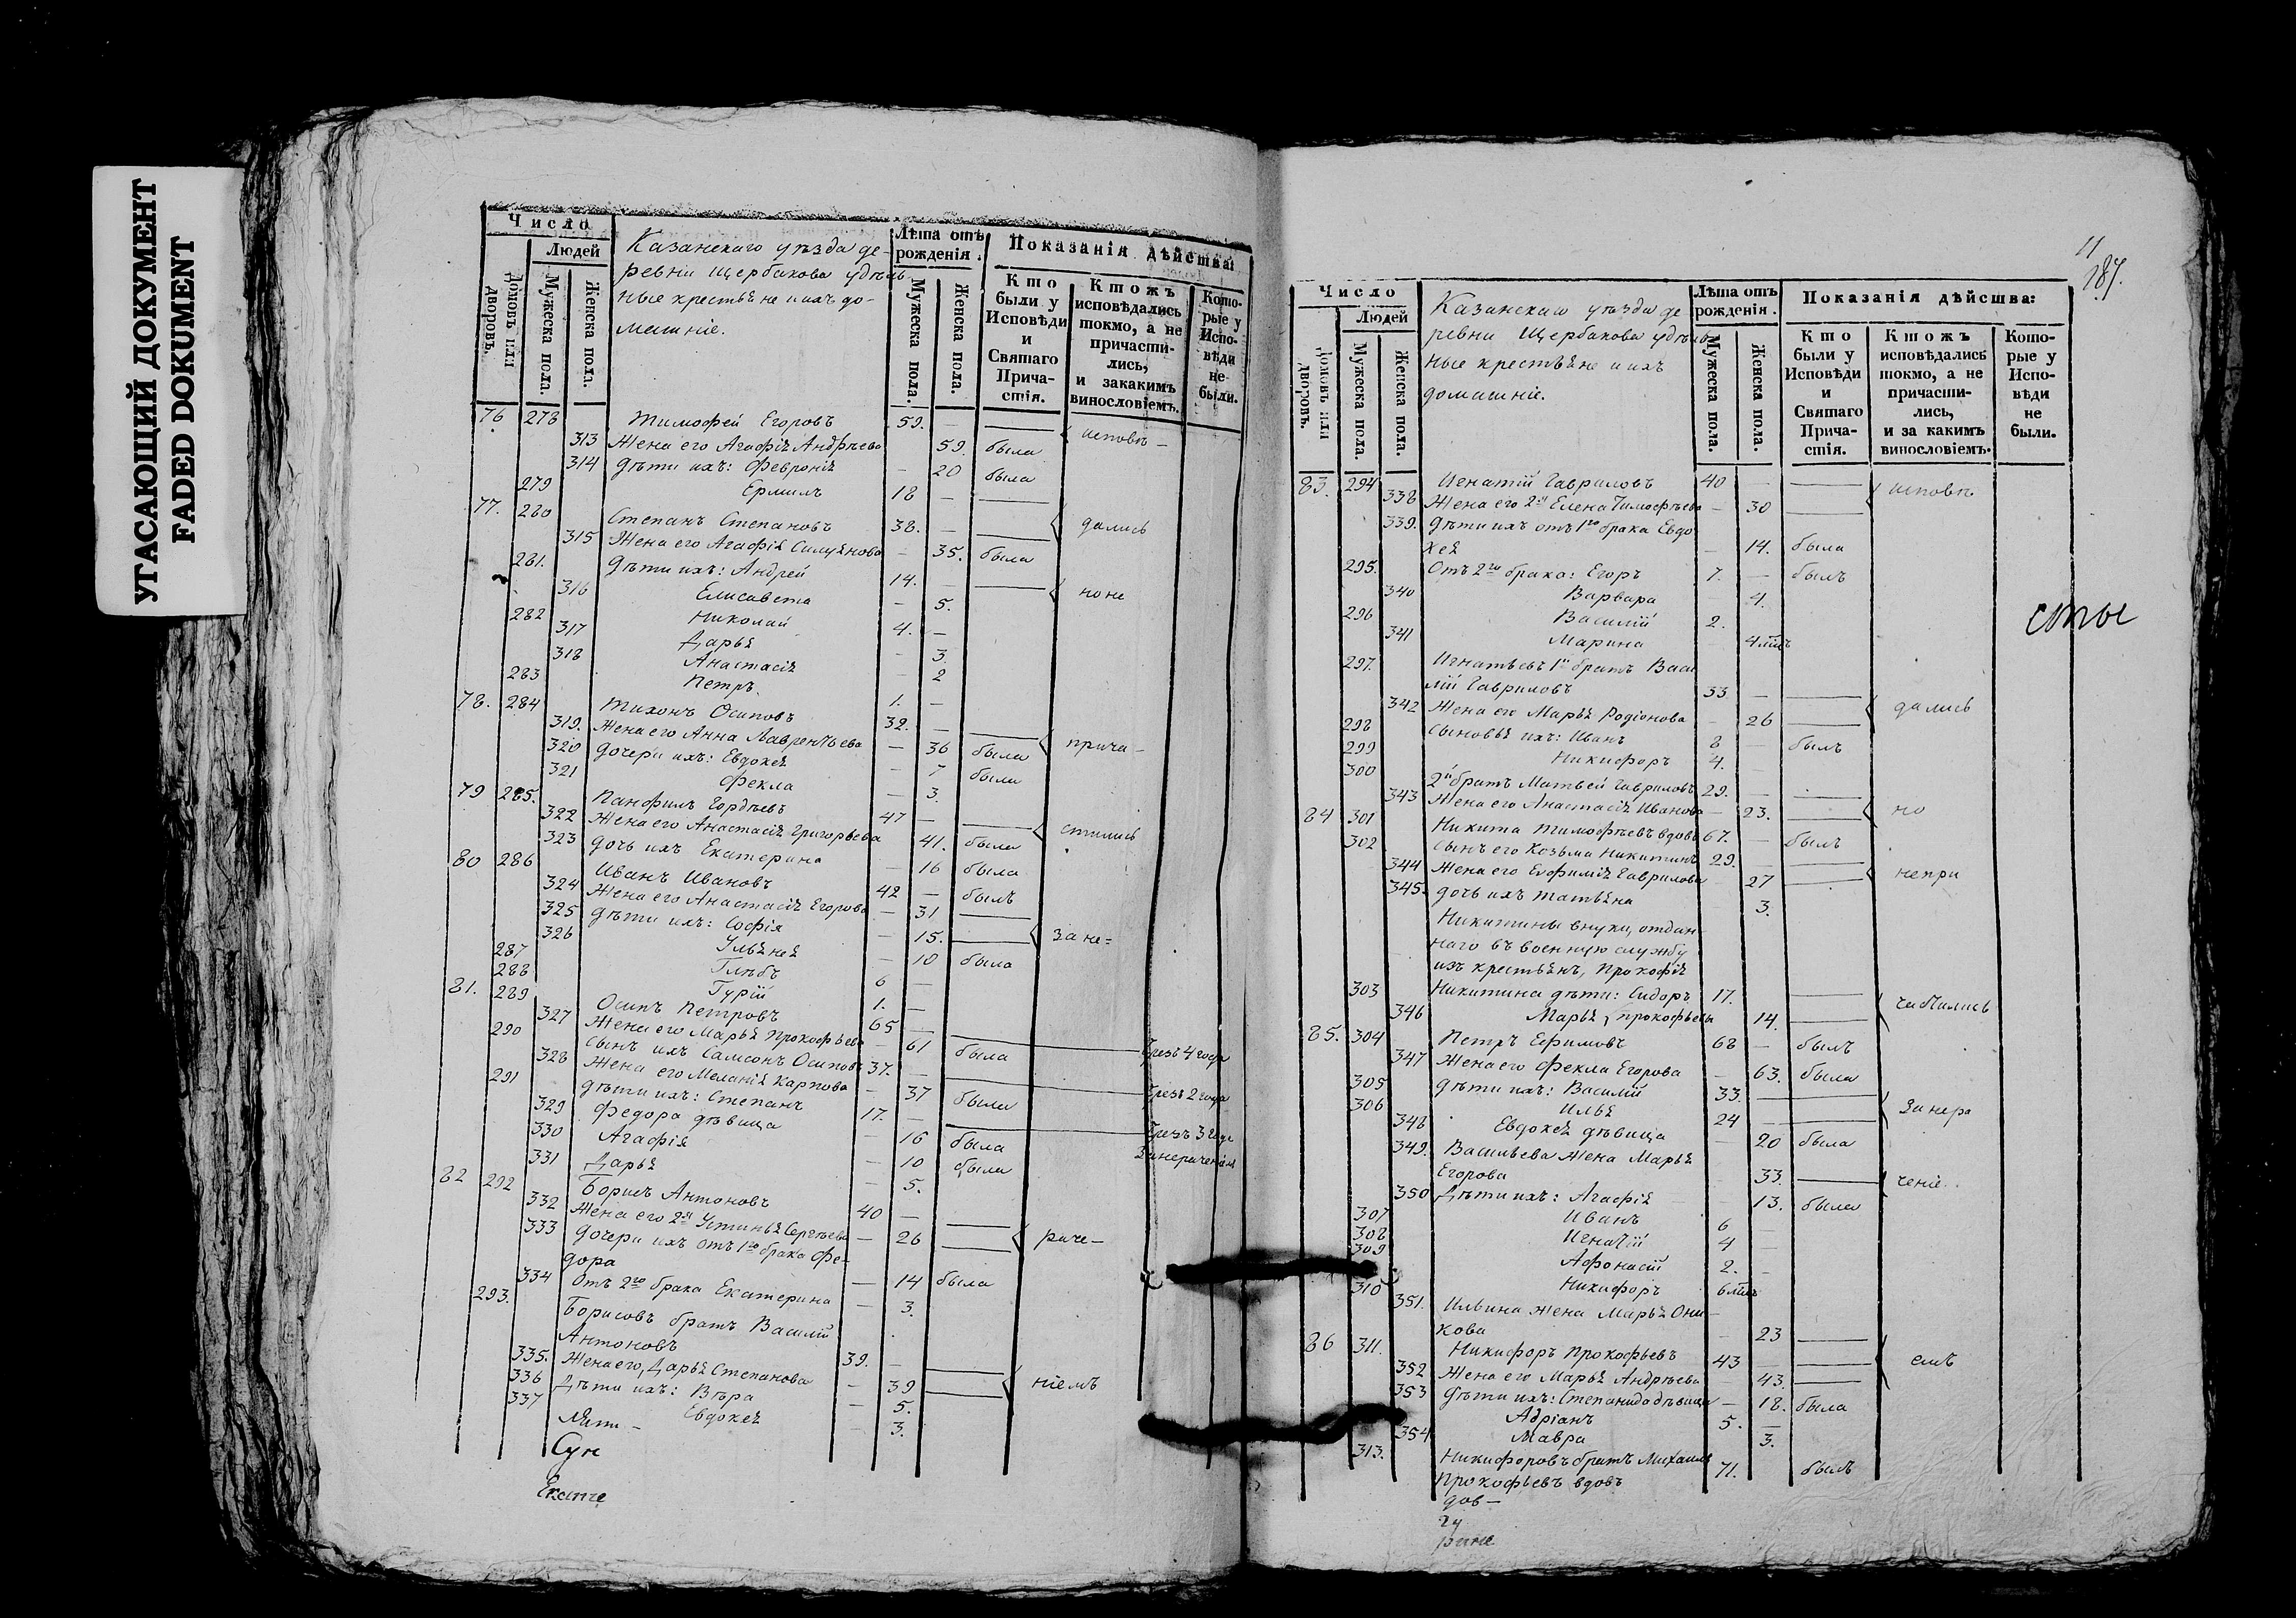 УГАСАЮЩИЙ ДОКУМЕНТ
FADED DOKUMENT
Число
Людей
Домовъ или дворовъ.
Мужеска пола.
Женска пола.
Казанскаго уѣзда де-
ревни Щербакова удѣль
ные крестьяне и ихъ до-
машніе.
Лѣта отъ рожденія.
Мужеска пола.
Женска пола.
Показанія дѣйства:
Кто были у Исповѣди и Святаго Прича-стія.
Ктожъ исповѣдались токмо, а не причасти-лись, и закакимъ винословіемъ.
Кото-рые у Испо-вѣди не были.
76 278 Тимофей Егоровъ 59. — исповѣ-
313 Жена его Агафія Андрѣева 59. была
314 Дѣти ихъ: Феврониія — 20 была
279 Ермилъ 18 —
77. 280 Степанъ Степановъ 38. — дались
315 Жена его Агафія Силуянова — 35. была
281. Дѣти ихъ: Андрей 14. — но не
316 Елисавета — 5.
282 Николай 4. —
317 Дарья — 3.
318 Анастасія — 2
283 Петръ 1. —
78. 284 Тихонъ Осиповъ 32. — прича-
319. Жена его Анна Лаврентьева — 36 была
320 Дочери ихъ: Евдокея — 7 была
321 Фекла — 3.
79 285. Панфилъ Гордѣевъ 47 — стились
322 Жена его Анастасія Григорьева 41. была
323 Дочь ихъ Екатерина — 16 была
80 286 Иванъ Ивановъ 42 — былъ
324 Жена его Анастасія Егорова — 31
325 Дѣти ихъ: Софія — 15. за не=
326 Ульянея — 10 была
287 Глѣбъ 6 —
288 Гурій 1. —
81. 289 Осипъ Петровъ 65 — Чрезъ 4 года
327 Жена его Марья Прокофьева — 61 была
290 Сынъ ихъ Самсонъ Осиповъ 37. — Чрезъ 2 года
328 Жена его Меланія Карпова — 37 была
291 Дѣти ихъ: Степанъ 17. — Чрезъ 3 года
329 Федора дѣвица — 16 была
330 Агафія — 10 была
331 Дарья — 5.
82 292 Борисъ Антоновъ 40 —
332 Жена его 2я Устинья Сергѣева — 26 раче-
333 Дочери ихъ отъ 1го брака Фе-
дора — 14 была
334 Отъ 2го брака Екатерина — 3.
293. Борисовъ братъ Василій
Антоновъ 39. —
335. Жена его, Дарья Степанова — 39 ніемъ
336 Дѣти ихъ: Вѣра — 5.
337 Евдокея — 3.
Екате
11
187.
Число
Людей
Домовъ или дворовъ.
Мужеска пола.
Женска пола.
Казанскаго уѣзда де
ревни Щербакова удѣль
ные крестьяне и ихъ
домашніе.
Лѣта отъ рожденія.
Мужеска пола.
Женска пола.
Показанія дѣйства:
Кто были у Исповѣди и Святаго Прича-стія.
Ктожъ исповѣдались токмо, а не причасти-лись, и за какимъ винословіемъ.
Кото-рые у Испо-вѣди не были.
83. 294 Игнатій Гавриловъ 40 — исповѣ
338 Жена его 2я Елена Тимофѣева — 30
339. Дѣти ихъ отъ 1го брака Евдо
кея — 14. была
295. Отъ 2го брака: Егоръ 7. — былъ
340 Варвара — 4.
296 Василій 2.
341 Марина
сты
297. Игнатьевъ 1й братъ Васи
лій Гавриловъ 33 — дались
342 Жена его Марья Родіонова — 26
298 Сыновья ихъ: Иванъ 8 — былъ
299 Никифоръ 4.
300 2й братъ Матвей Гавриловъ 29. —
343 Жена его Анастасія Иванова — 23. но
84 301 Никита Тимофѣевъ вдовъ 67. — былъ
302 Сынъ его Козьма Никитинъ 29. —
344 Жена его Евфимія Гаврилова 27 непри
345. Дочь ихъ Татьяна 3.
Никитины внуки, отдан-
наго въ военную службу
изъ крестьянъ, Прокофія
303 Никитина дѣти: Сидоръ 17.
346 Марья, Прокофьевы 14. частились
85. 304 Петръ Ефимовъ 68 — былъ
347 Жена его Фекла Егорова — 63. была
305 Дѣти ихъ: Василій 33.
306 Илья 24 — за нера
348 Евдокея дѣвица — 20 была
349. Васильева жена Марья
Егорова 33. чение
350 Дѣти ихъ: Агафія 13. была
307 Иванъ 6
308 Игнатій 4
309 Афонасій 2.
310 Никифоръ
351. Ильина жена Марья Они-
кова — 23
86 311. Никифоръ Прокофьевъ 43 — емъ
352 Жена его Марья Андрѣева — 43.
353 Дѣти ихъ: Степанида дѣвица — 18. была
Адріанъ 5. —
354 Мавра 3.
313. Никифоровъ братъ Михаилъ
Прокофьевъ вдовъ 71. былъ
дов-
рине